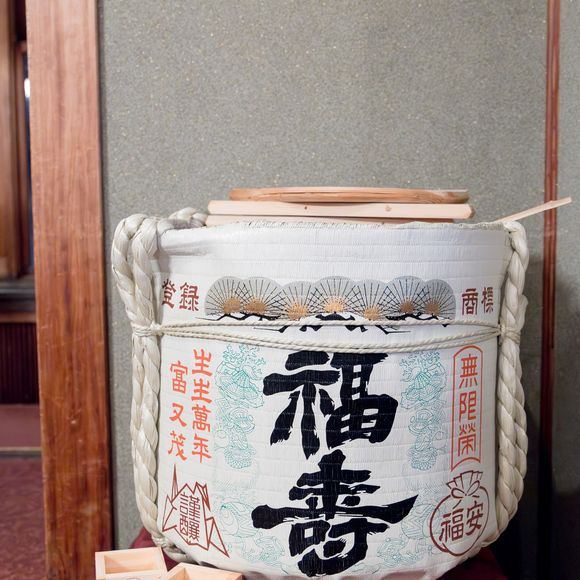 登録
商標
福寿
生生萬年
富又茂
無限榮
謹醸
福安